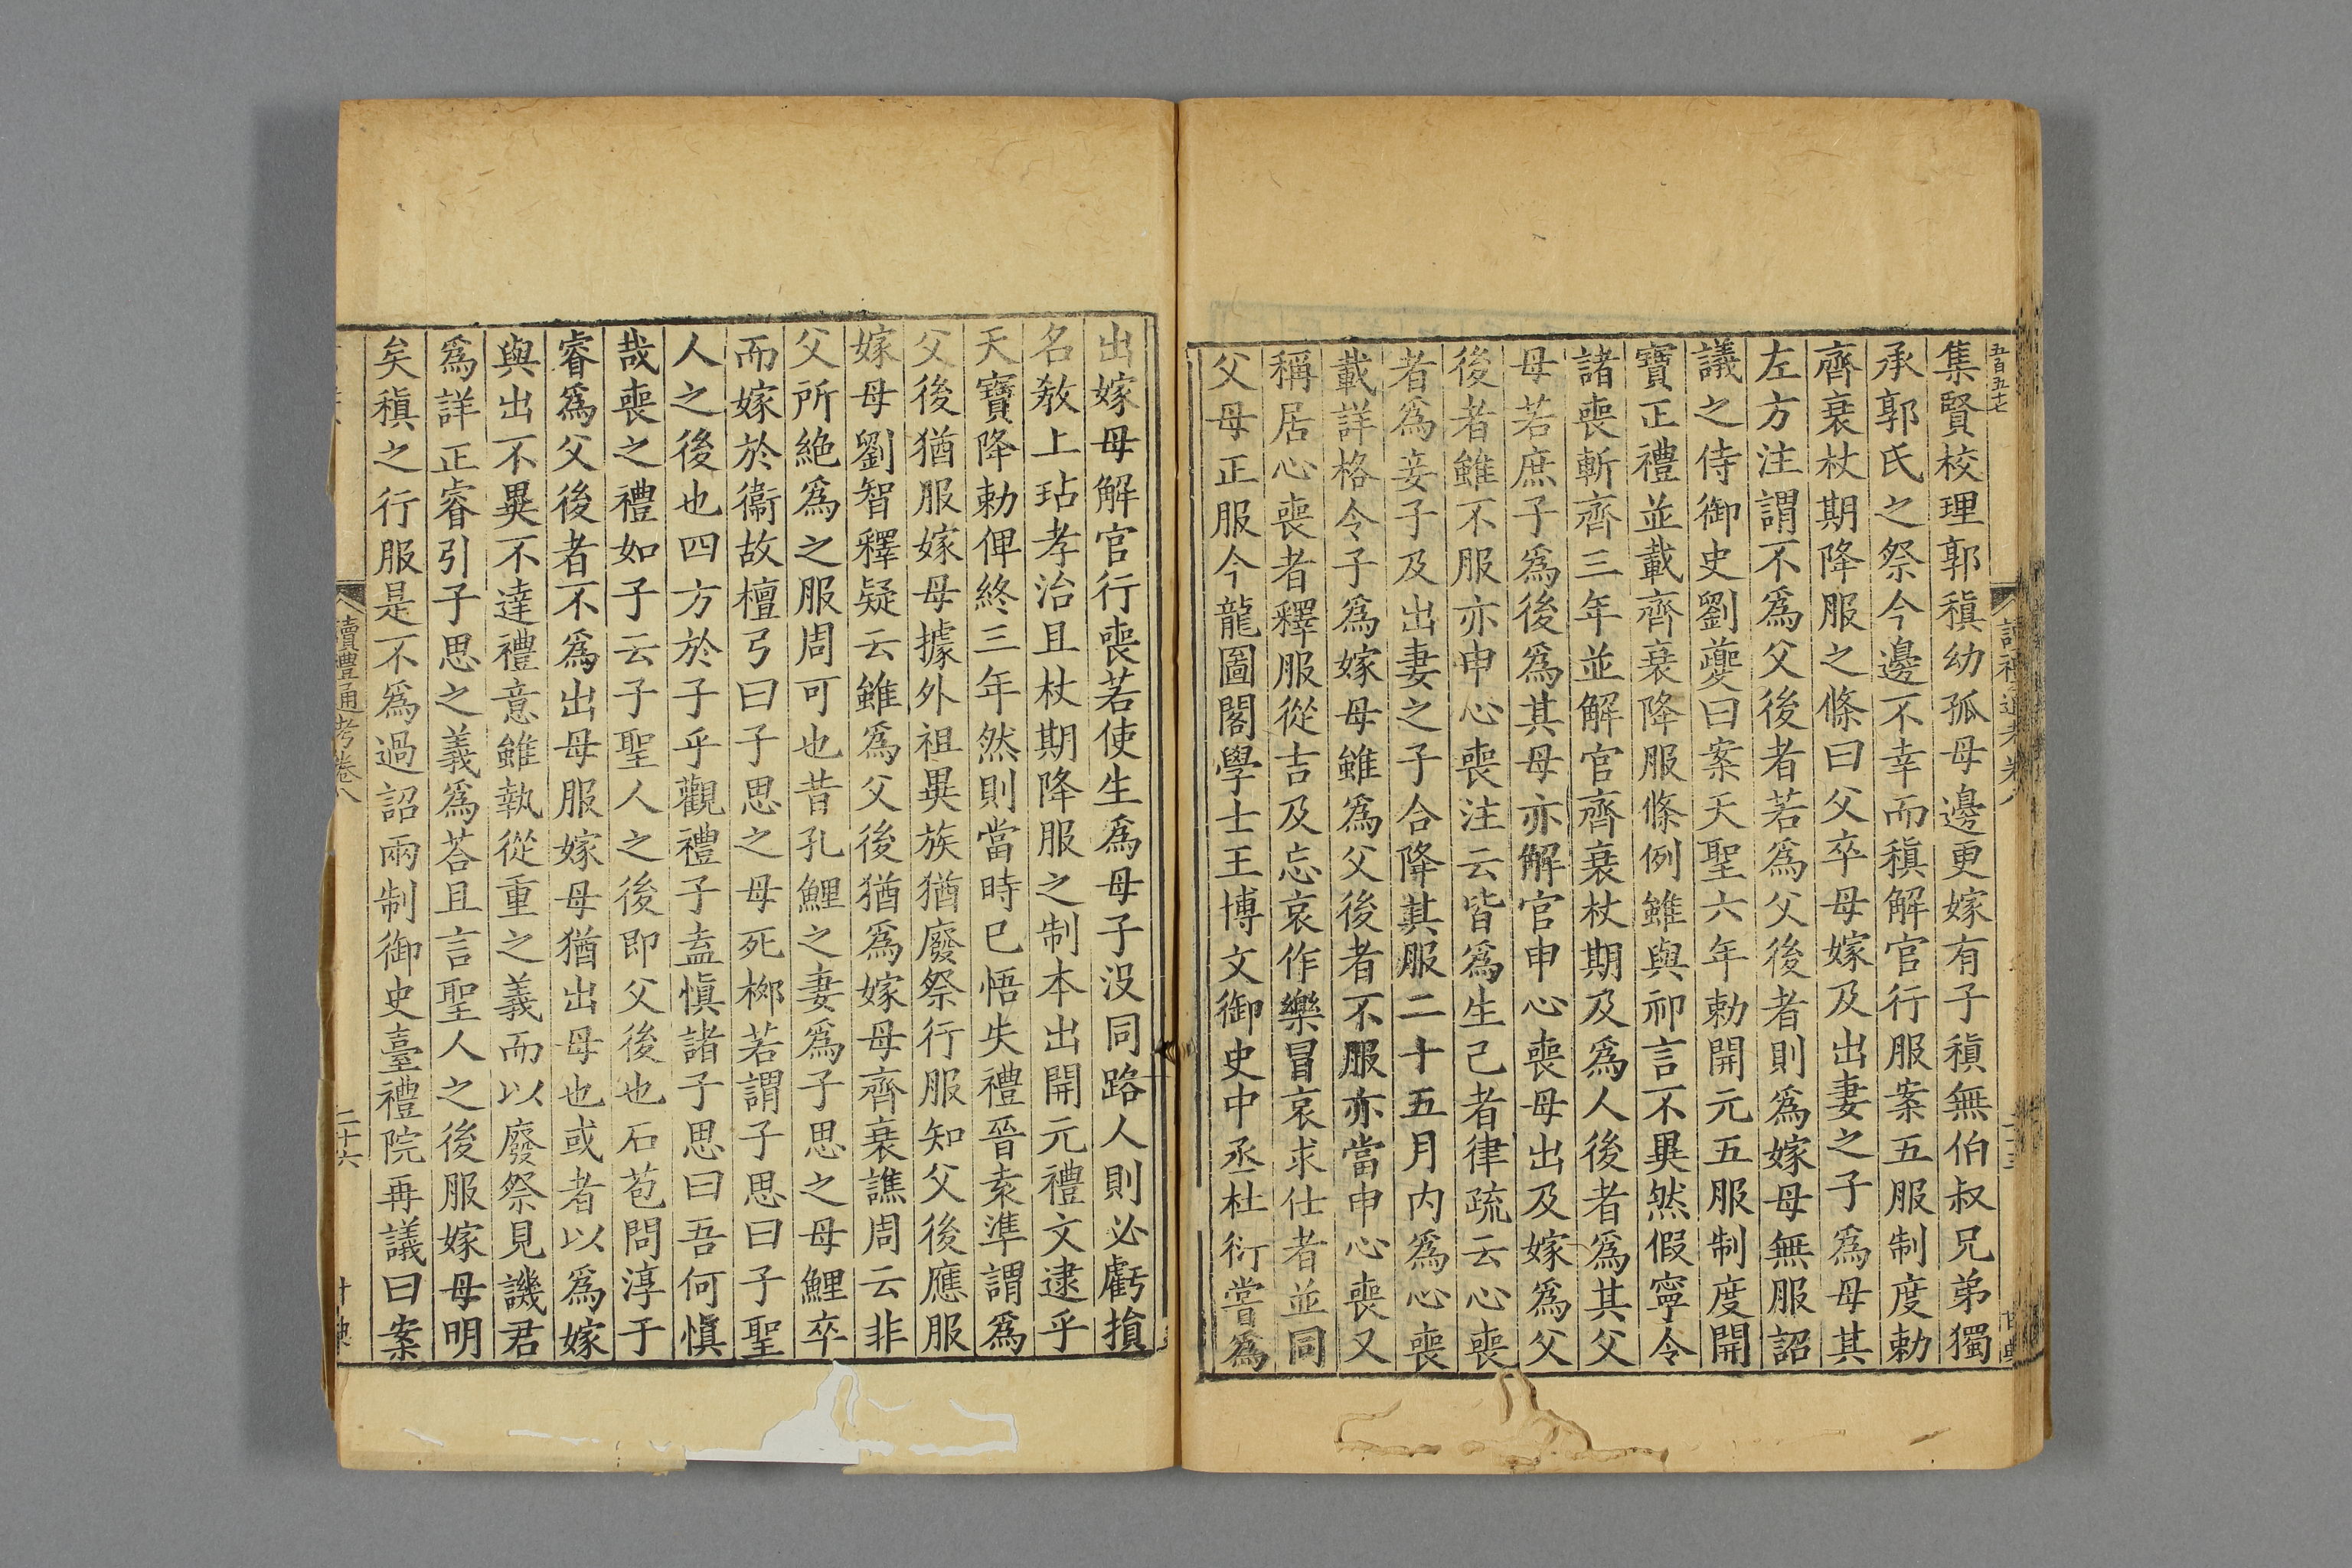 五百五十七
集賢校理郭稹幼孤母邊更嫁有子稹無伯叔兄弟獨
承郭氏之祭今邊不幸而稹解官行服案五服制度勅
齊衰杖期降服之條曰父卒母嫁及出妻之子爲母其
左方注謂不爲父後者若爲父後者則爲嫁母無服詔
議之侍御史劉夔曰案天聖六年勅開元五服制度開
寶正禮並載齊衰降服條例雖與祁言不異然假寧令
諸喪斬齊三年並解官齊衰杖期及爲人後者爲其父
母若庶子爲後爲其母亦解官申心喪母出及嫁爲父
後者雖不服亦申心喪注云皆爲生己者律疏云心喪
者爲妾子及出妻之子合降其服二十五月内爲心喪
載詳格令子爲嫁母雖爲父後者不服亦當申心喪又
稱居心喪者釋服從吉及忘哀作樂冒哀求仕者並同
父母正服今龍圖閣學士王博文御史中丞杜衍嘗爲
出嫁母解官行喪若使生爲母子没同路人則必虧損
名教上玷孝治且杖期降服之制本出開元禮文逮乎
天寶降勅俾終三年然則當時已悟失禮晉袁準謂爲
父後猶服嫁母據外祖異族猶廢祭行服知父後應服
嫁母劉智釋疑云雖爲父後猶爲嫁母齊衰譙周云非
父所絶爲之服周可也昔孔鯉之妻爲子思之母鯉卒
而嫁於衞故檀弓曰子思之母死桞若謂子思曰子聖
人之後也四方於子乎觀禮子盍慎諸子思曰吾何慎
哉喪之禮如子云子聖人之後即父後也石苞問淳于
睿爲父後者不爲出母服嫁母猶出母也或者以爲嫁
與出不異不達禮意雖執從重之義而以廢祭見譏君
爲詳正睿引子思之義爲荅且言聖人之後服嫁母明
矣稹之行服是不爲過詔兩制御史臺禮院再議曰案
讀禮通考卷八
二十六